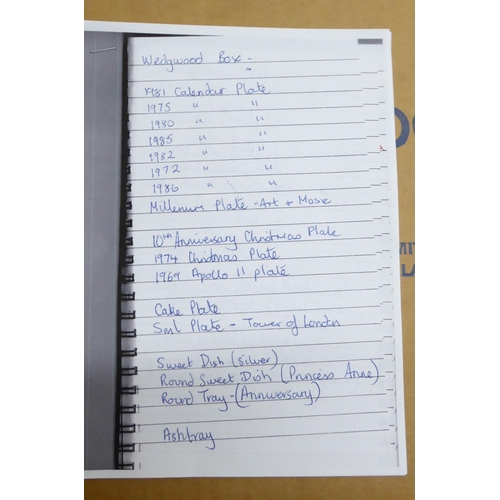 Wedgwood Box :-
1981 Calendar Plate
1975 " "
1980 " "
1985 " "
1982 " "
1972 " "
1986 " "
Millenium Plate - Art + Music
10th Anniversary Christmas Plate
1974 Christmas Plate
1969 Apollo 11 plate
Cake Plate
Sml Plate - Tower of London
Sweet Dish (silver)
Round Sweet Dish (Princess Anne)
Round Tray - (Anniversary)
Ashtray